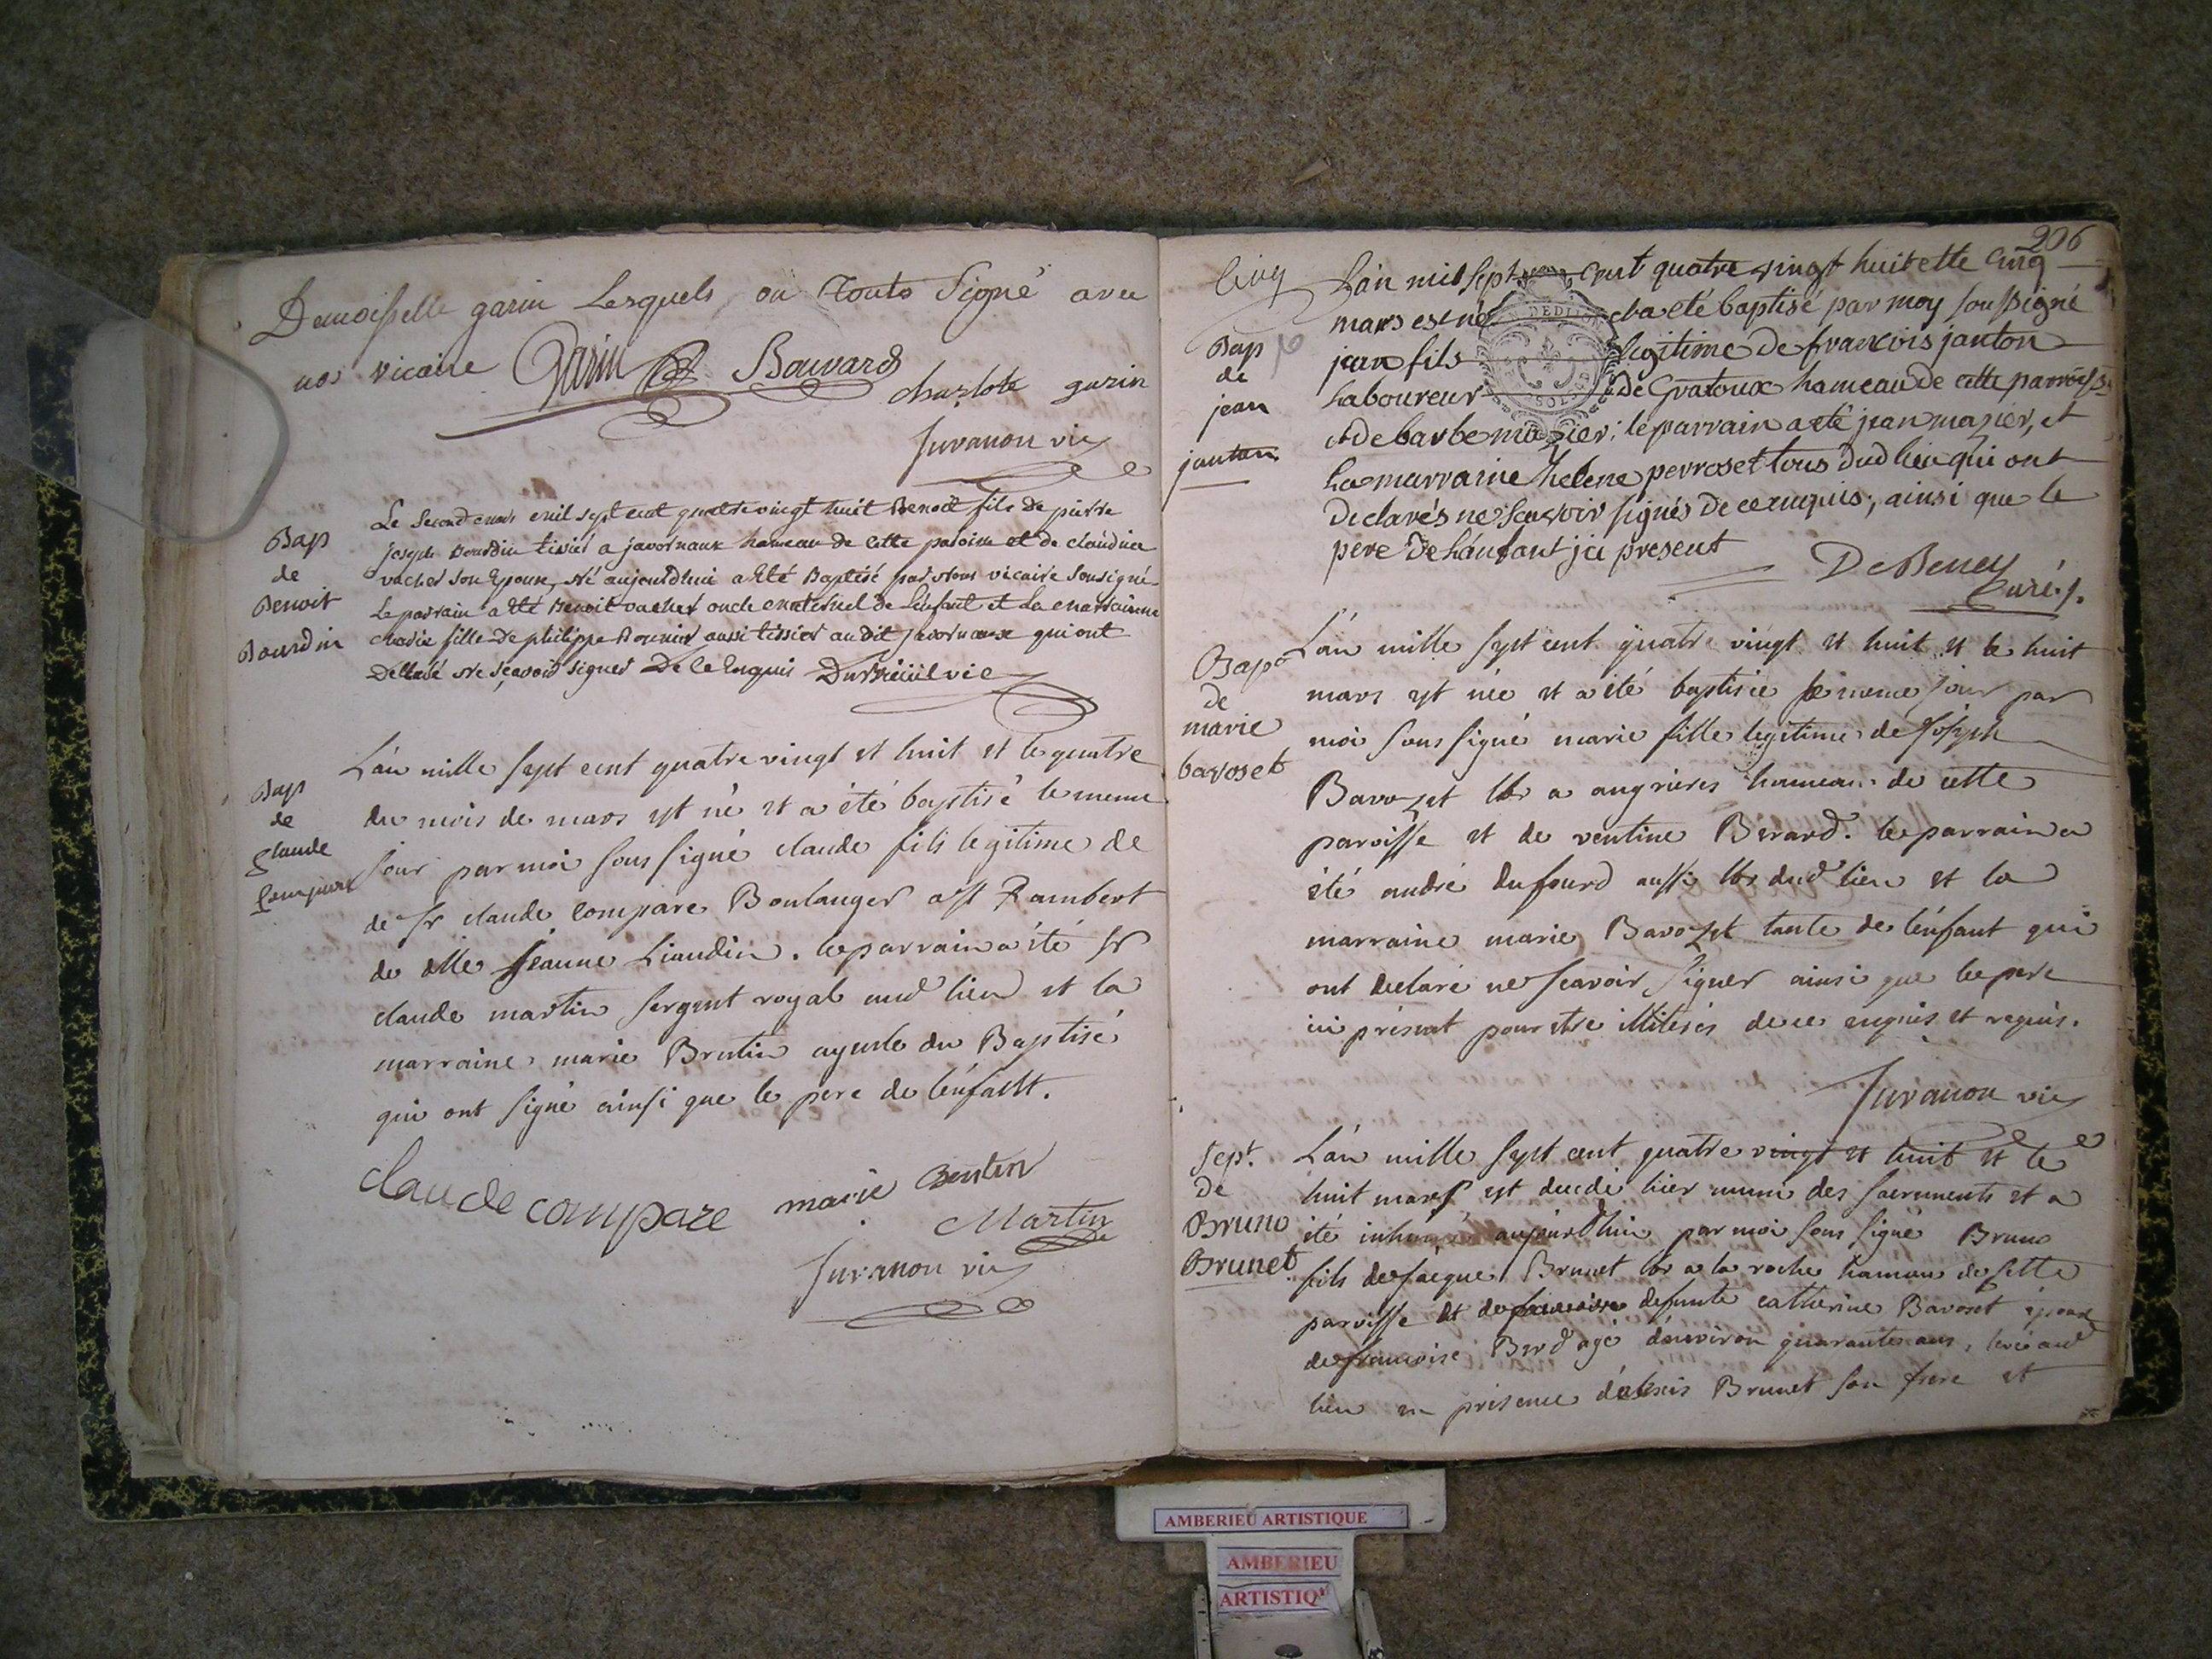 Demoiselle garin Lesquels on touts Signé avec
nos vicaire Garin Bouvard
charlote garin
Juvanon vic
Bap
de
Benoit
Bourdin
Le Second mars mil sept cent quatre vingt huit Benoit fils de pierre
joseph Bourdin tissier a javornaux hameau de cette paroisse et de claudine
vacher son Epouse, Né aujourdhui a Eté Baptisé par Nous vicaire Sousigné
Le parrain a Eté Benoit vacher oncle maternel de L'enfant et La marrainne
marie fille De philippe Bounier aussi tissier au dit javornaux qui ont
Declaré Ne sçavoir signer De ce Enquis vic
Bap
de
Claude
Compare
L'an mille sept cent quatre vingt et huit et le quatre
du mois de mars est né et a été baptisé le meme
jour par moi sous signé claude fils legitime de
de Sr claude Compare Boulanger a St Rambert
de dlle jeanne Liaudin. le parrain a été Sr
claude martin sergent royal aud lieu et la
marraine marie Brutin ayeule du Baptisé
qui ont signé ainsi que le pere de l'enfant.
claude compare marie
Martin
Juvanon vic
206
Cinq L'an mil sept cent quatre vingt huit et le Cinq
mars est né et a eté baptisé par moy soussigné
Bap
de
jean
janton
jean fils legitime de francois janton
Laboureur de Gratoux hameau de cette parroisse
et de barbe mazier: le parrain a eté jean mazier, et
La marraine helene perroset tous dud lieu qui ont
declarés ne scavoir signés de ce enquis; ainsi que le
pere de L'anfant ici present
De Beney
Curé.
Bap
de
marie
bavoset
L'an mille sept cent quatre vingt et huit et le huit
mars est née et a été baptisée le meme jour par
moi sous signé marie fille legitime de Joseph
Bavozet lbr a angrieres hameau de cette
paroisse et de ventine Berard. le parrain a
été andré dufourd aussi lbr dud lieu et la
marraine marie Bavozet tante de l'enfant qui
ont declaré ne scavoir signer ainsi que le pere
ici présent pour etre illiterés de ce enquis et requis.
Juvanon vic
Sept.
de
Bruno
Brunet
L'an mille sept cent quatre vingt et huit et le
huit mars est decedé hier muni des sacrements et a
été inhumé aujourdhui par moi sous signé Bruno
fils de jacque Brunet lbr a la roche hameau de cette
paroisse et de defunte catherine Bavoset époux
de francoise agé d'environ quarante ans, levé aud
lieu en présence d'alexis Brunet son frere et
AMBERIEU ARTISTIQUE
AMBERIEU
ARTISTIQ